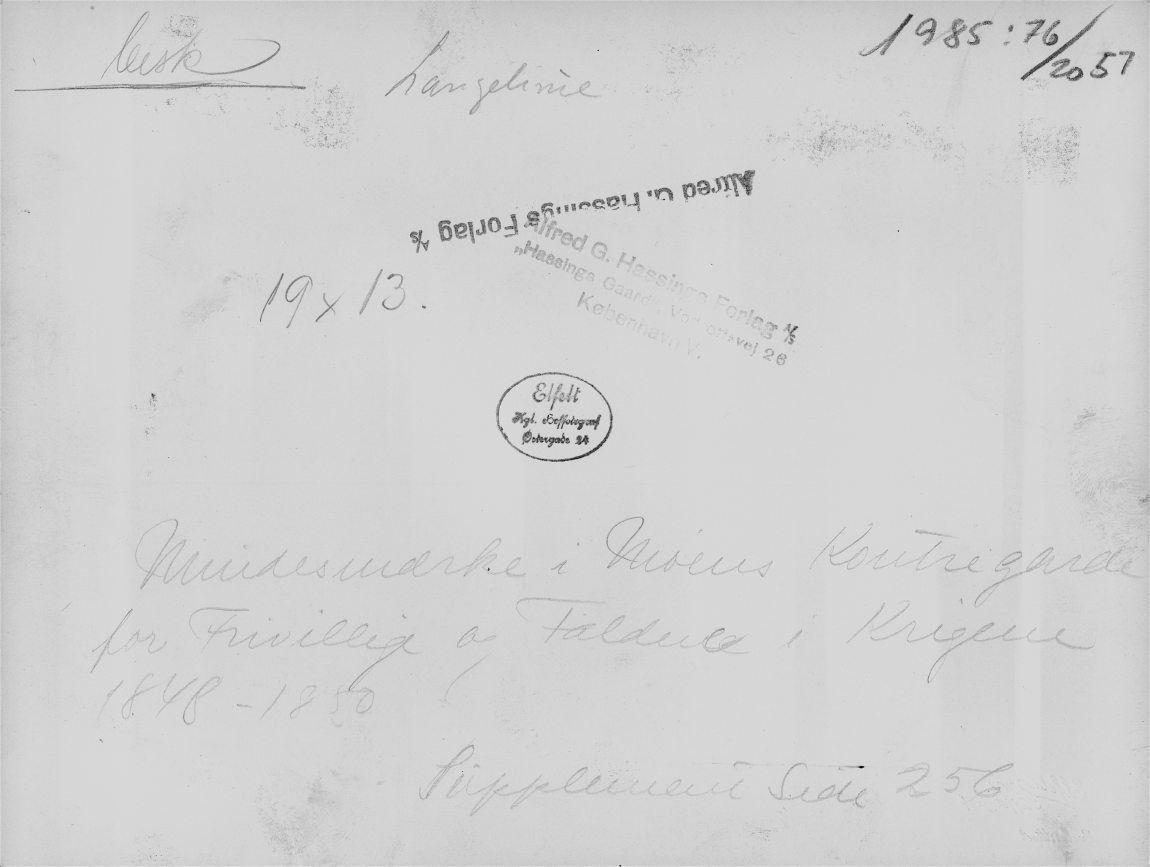 1985:76/2057
Langelinie
Alfred G. Hassings Forlag A/S
Alfred G. Hassings Forlag A/S
„Hassings Gaard", Vej 26
København V.
19 x 13.
Elfelt
Kgl. Hoffotograf
Østergade 24
Mindesmærke i Møens Kontregarde
for Frivillig og Faldne i Krigene
1848-1850
Supplement Side 256